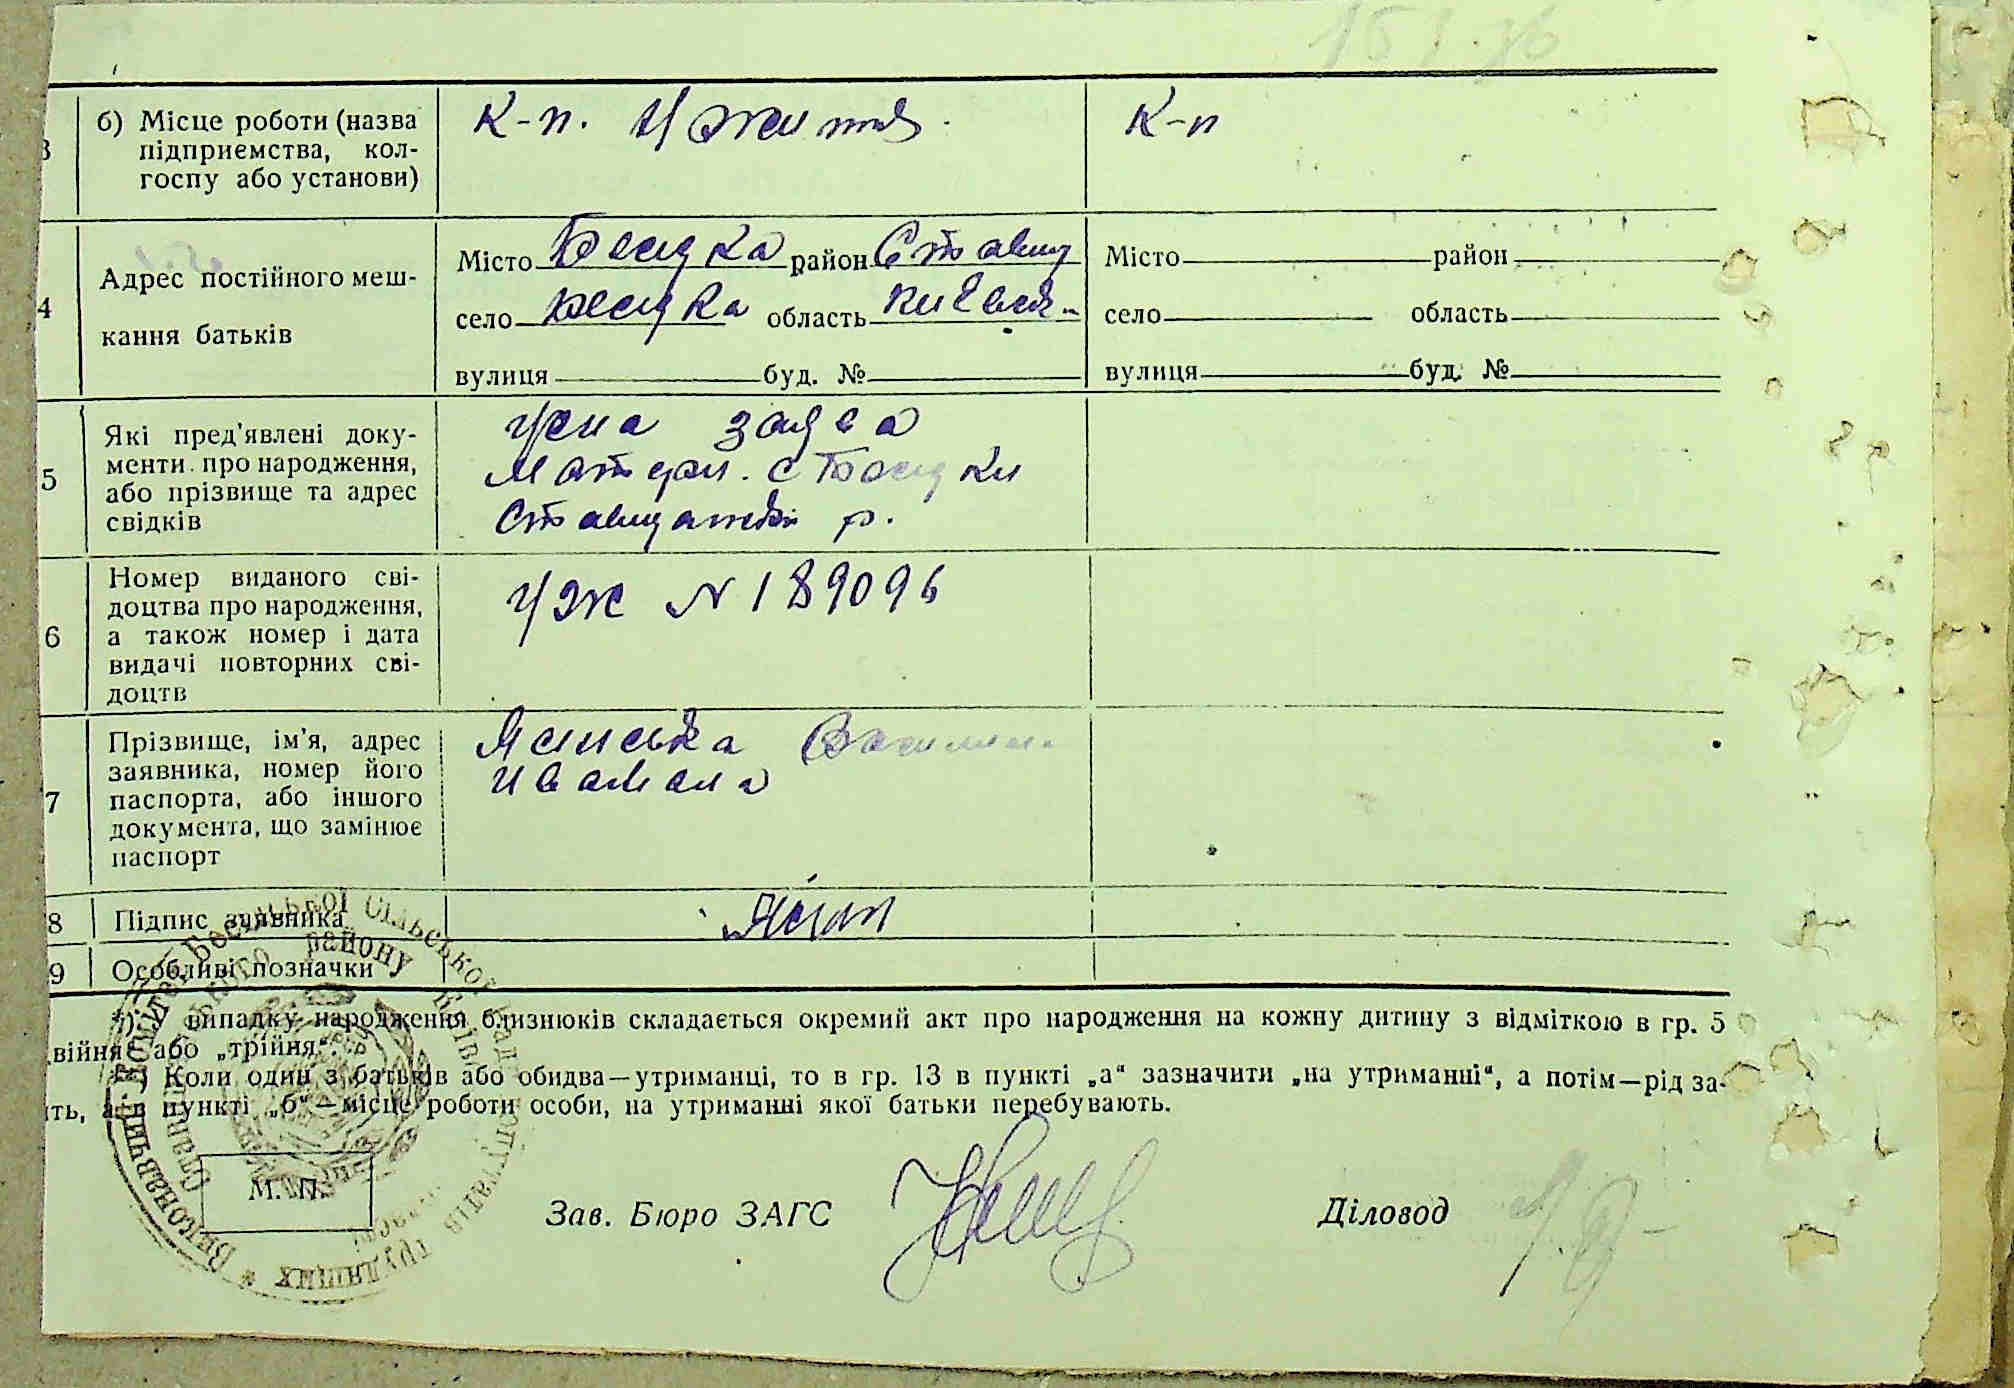 3
б) Місце роботи (назва
підприємства, кол-
госпу або установи)
К-п.
К-п
4
Адрес постійного меш-
кання батьків
Місто Бесідка район Ставищ
село Бесідка область Київськ.
вулиця буд. №
Місто район
село область
вулиця буд. №
5
Які пред'явлені доку-
менти про народження,
або прізвище та адрес
свідків
Усна заява
Матери. с Бесідки
Ставищанськ р.
6
Номер виданого сві-
доцтва про народження,
а також номер і дата
видачі повторних сві-
доцтв
УЖ N 189096
7
Прізвище, ім'я, адрес
заявника, номер його
паспорта, або іншого
документа, що замінює
паспорт
Ясинська
Ивановна
8
Підпис заявника
Ясин
9
Особливі позначки
випадку народження близнюків складається окремий акт про народження на кожну дитину з відміткою в гр. 5
війня" або „трійня".
Коли один з батьків або обидва—утриманці, то в гр. 13 в пункті „а" зазначити „на утриманні", а потім—рід за-
ть, а в пункті „б"—місце роботи особи, на утриманні якої батьки перебувають.
М. П.
Зав. Бюро ЗАГС
Діловод